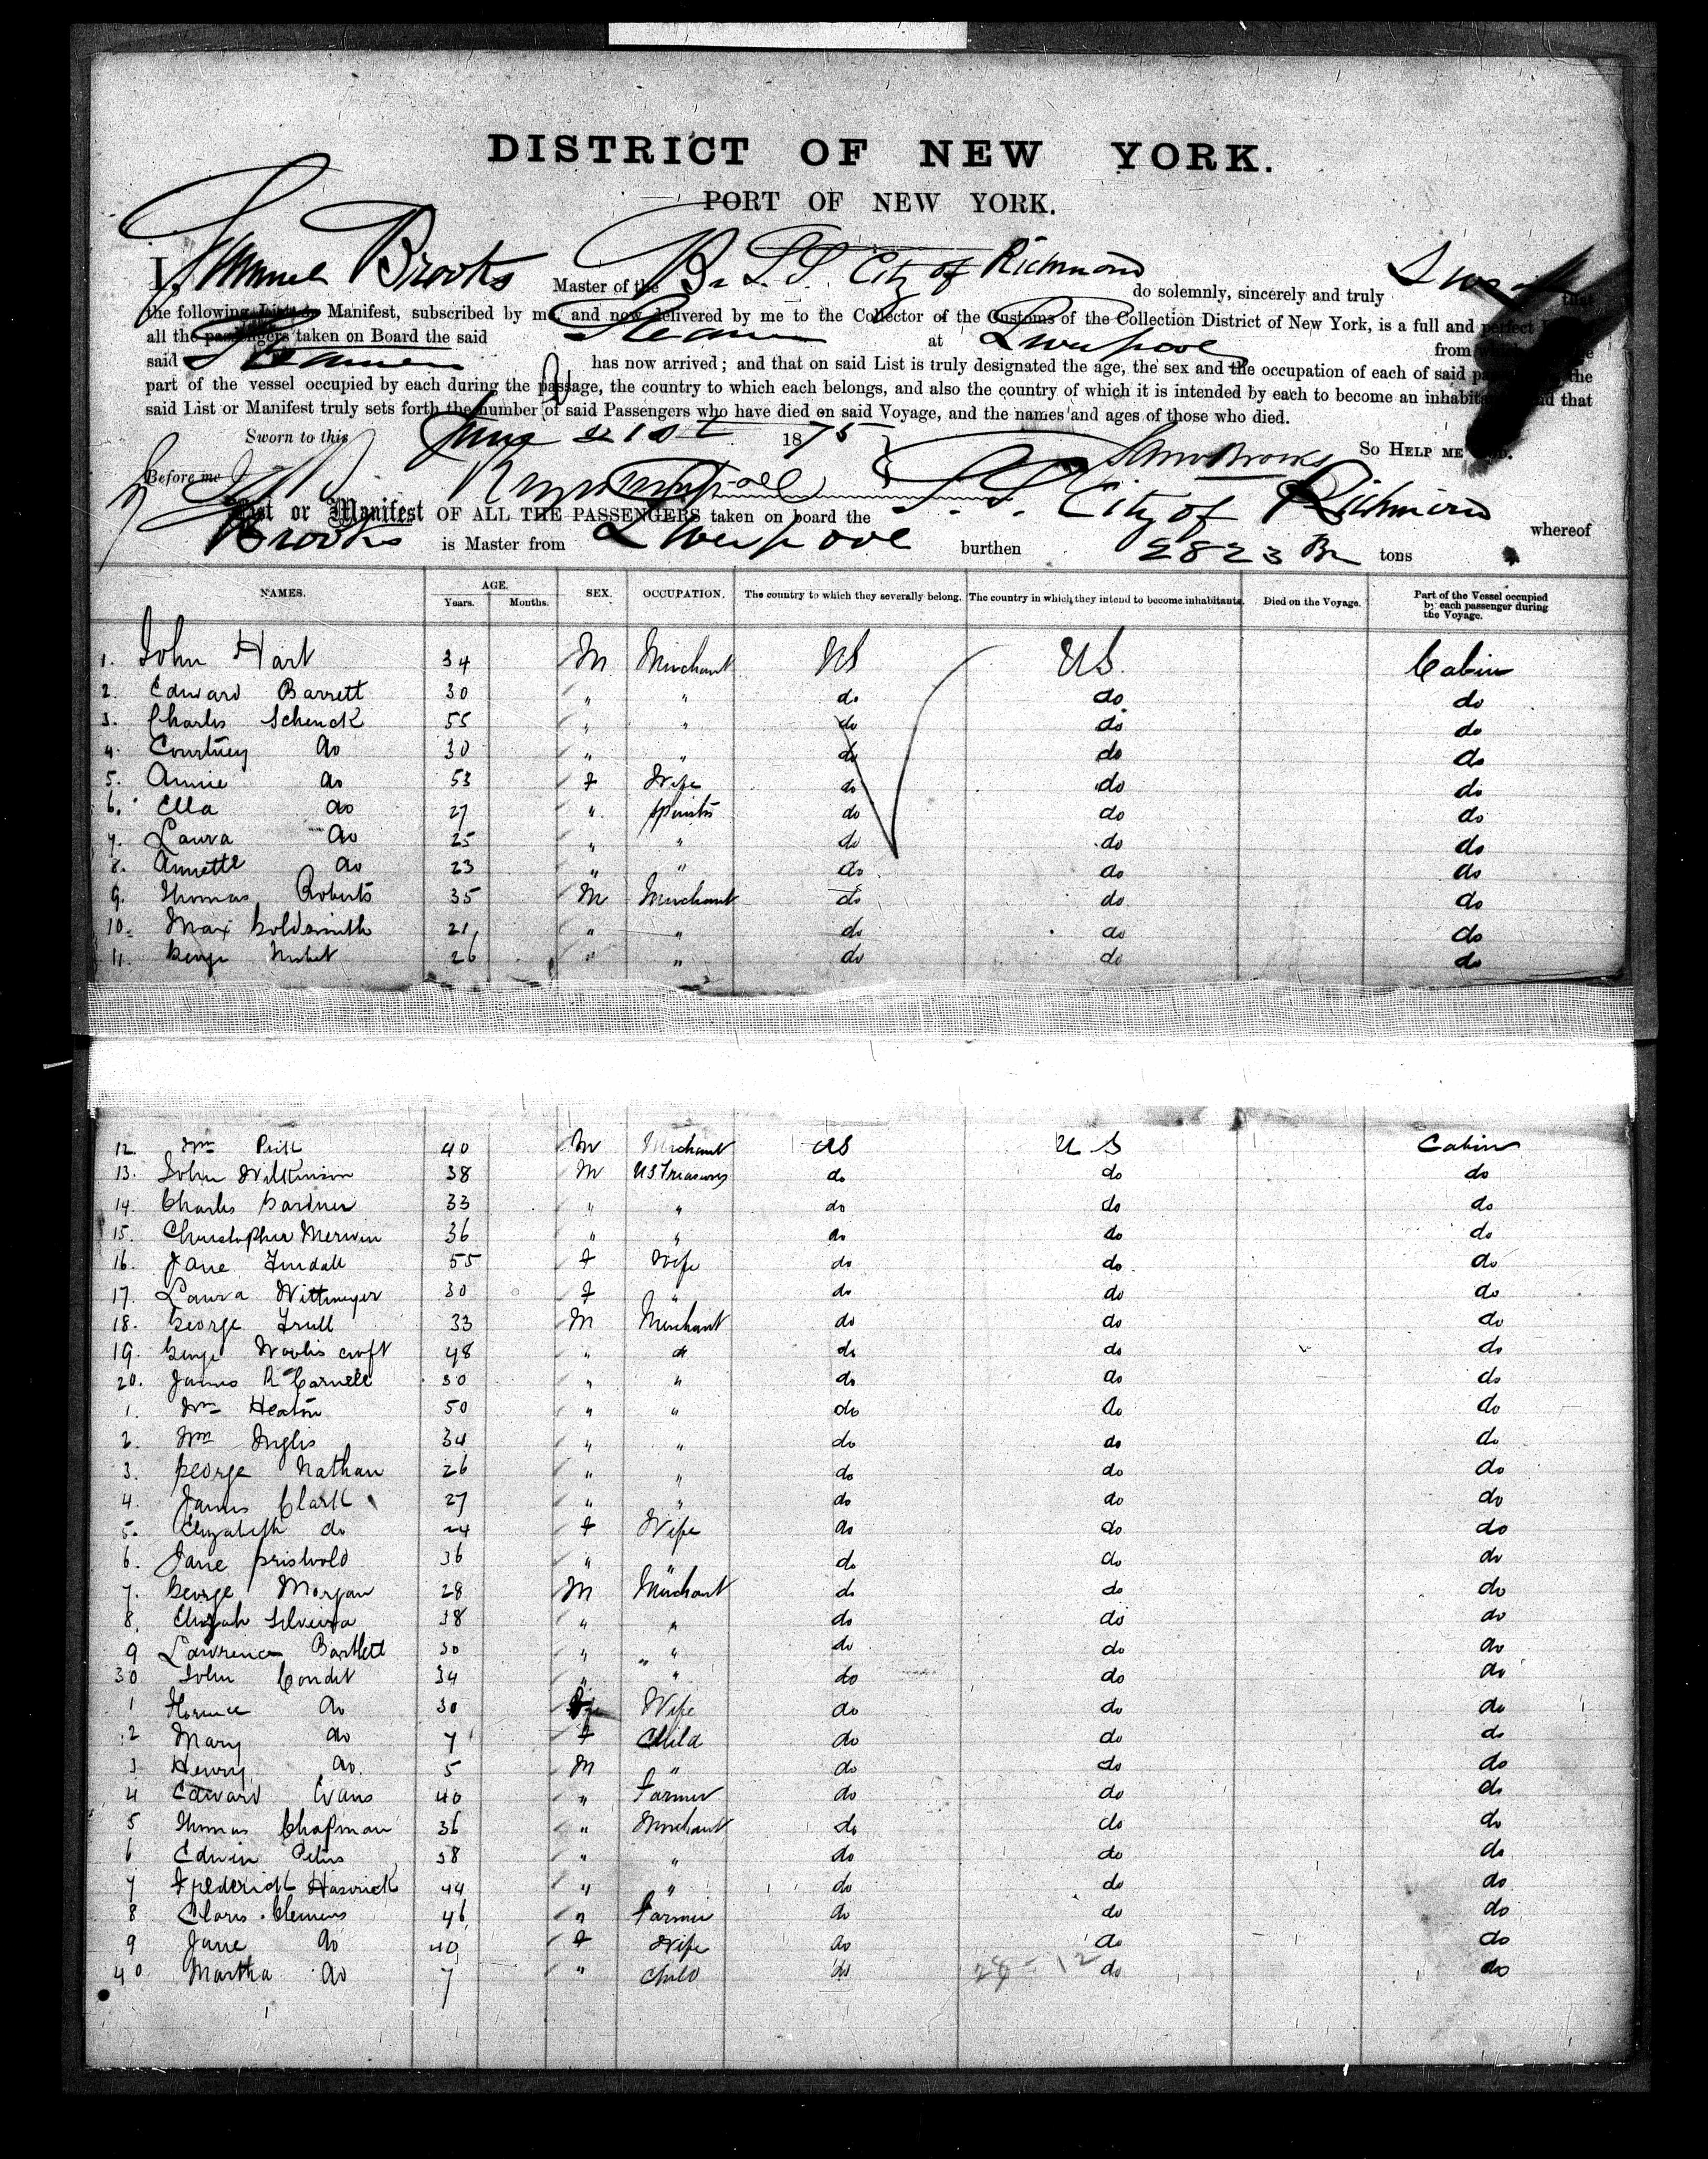 DISTRICT OF NEW YORK.
PORT OF NEW YORK.
I, Samuel Brooks Master of the Br S.S. City of Richmond do solemnly, sincerely and truly Swear that
the following List or Manifest, subscribed by me, and now delivered by me to the Collector of the Customs of the Collection District of New York, is a full and perfect
all the passengers taken on Board the said Steamer at Liverpool from
said Steamer has now arrived; and that on said List is truly designated the age, the sex and the occupation of each of said the
part of the vessel occupied by each during the passage, the country to which each belongs, and also the country of which it is intended by each to become an inhabitant that
said List or Manifest truly sets forth the number of said Passengers who have died on said Voyage, and the names and ages of those who died.
Sworn to this June 21st 1875 So HELP ME GOD.
Before me Saml Brooks
List or Manifest OF ALL THE PASSENGERS taken on board the S.S. City of Richmond whereof
Brooks is Master from Liverpool burthen 2823 Br tons
NAMES. AGE. Years. Months. SEX. OCCUPATION. The country to which they severally belong. The country in which they intend to become inhabitants. Died on the Voyage. Part of the Vessel occupied by each passenger during the Voyage.
1. John Hart 34 M Merchant US US Cabin
2. Edward Barrett 30 " " do do do
3. Charles Schenck 55 " " do do do
4. Courtney do 30 " " do do do
5. Annie do 53 F Wife do do do
6. Ella do 27 " Spinster do do do
7. Laura do 25 " " do do do
8. Annette do 23 " " do do do
9. Thomas Roberts 35 M Merchant do do do
10. Max Goldsmith 21 " " do do do
11. George 26 " " do do do
12. Wm 40 M Merchant US US Cabin
13. John Wilkinson 38 M US Treasury do do do
14. Charles Gardner 33 " " do do do
15. Christopher Merwin 36 " " do do do
16. Jane Tindall 55 F Wife do do do
17. Laura Wittmeyer 30 F " do do do
18. George Trull 33 M Merchant do do do
19. George Woolis croft 48 " do do do do
20. James R Cornell 30 " " do do do
1. Wm Heaton 50 " " do do do
2. Wm Inglis 34 " " do do do
3. George Nathan 26 " " do do do
4. James Clark 27 " " do do do
5. Elizabeth do 24 F Wife do do do
6. Jane Griswold 36 " " do do do
7. George Morgan 28 M Merchant do do do
8. Elijah Silveira 38 " " do do do
9 Lawrence Bartlett 30 " " do do do
30 John Condit 34 " " do do do
1 Florence do 30 Wife do do do
2 Mary do 7 F Child do do do
3 Henry do 5 M " do do do
4 Edward Evans 40 " Farmer do do do
5 Thomas Chapman 36 " Merchant do do do
6 Edwin Peters 38 " " do do do
7 Frederick Hasrick 44 " " do do do
8 Clars Clemens 46 " Farmer do do do
9 Jane do 40 F Wife do do do
40 Martha do 7 " Child do 28-12 do do